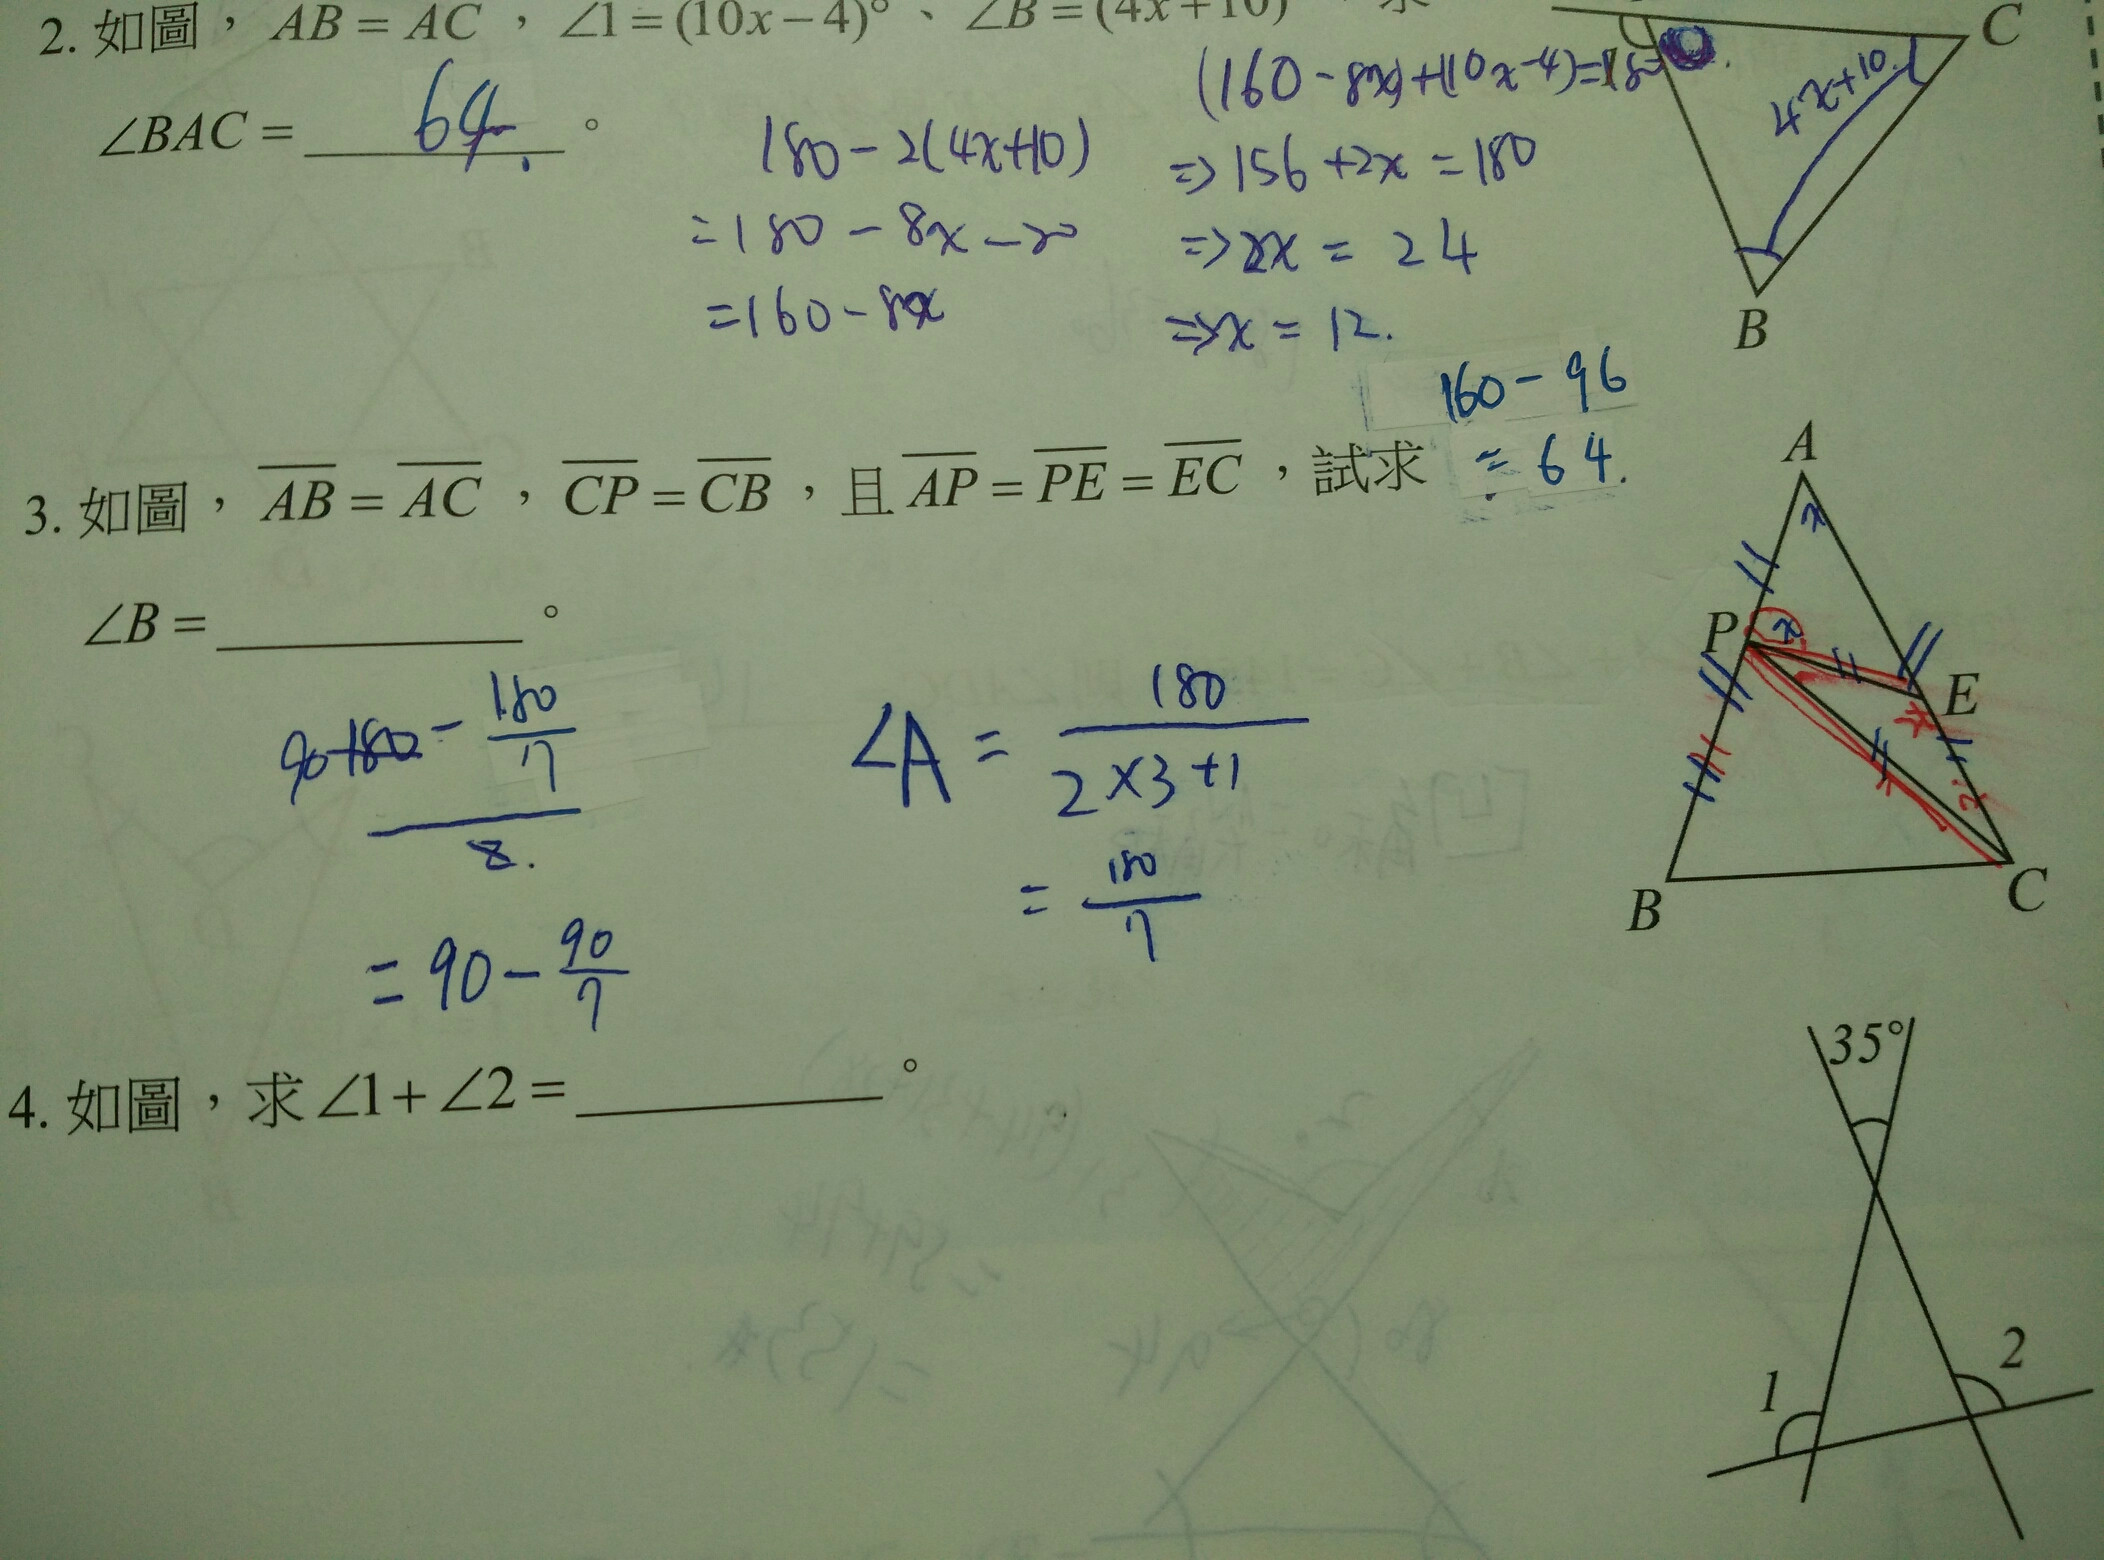 2. 如圖，AB = AC，∠1 = (10x − 4)°、∠B = (4x + 10)
∠BAC = 64. °
180 − 2(4x+10)
= 180 − 8x − 20
= 160 − 8x
(160 − 8x) + (10x − 4) = 180
⇒ 156 + 2x = 180
⇒ 2x = 24
⇒ x = 12.
160 − 96
= 64.
C
4x+10
B
3. 如圖，AB = AC，CP = CB，且 AP = PE = EC，試求
∠B = ______ °
90 180 − 180/7
2.
= 90 − 90/7
∠A = 180/(2×3+1)
= 180/7
A
x
P
x
E
B
C
4. 如圖，求∠1 + ∠2 = ______ °
35°
1
2